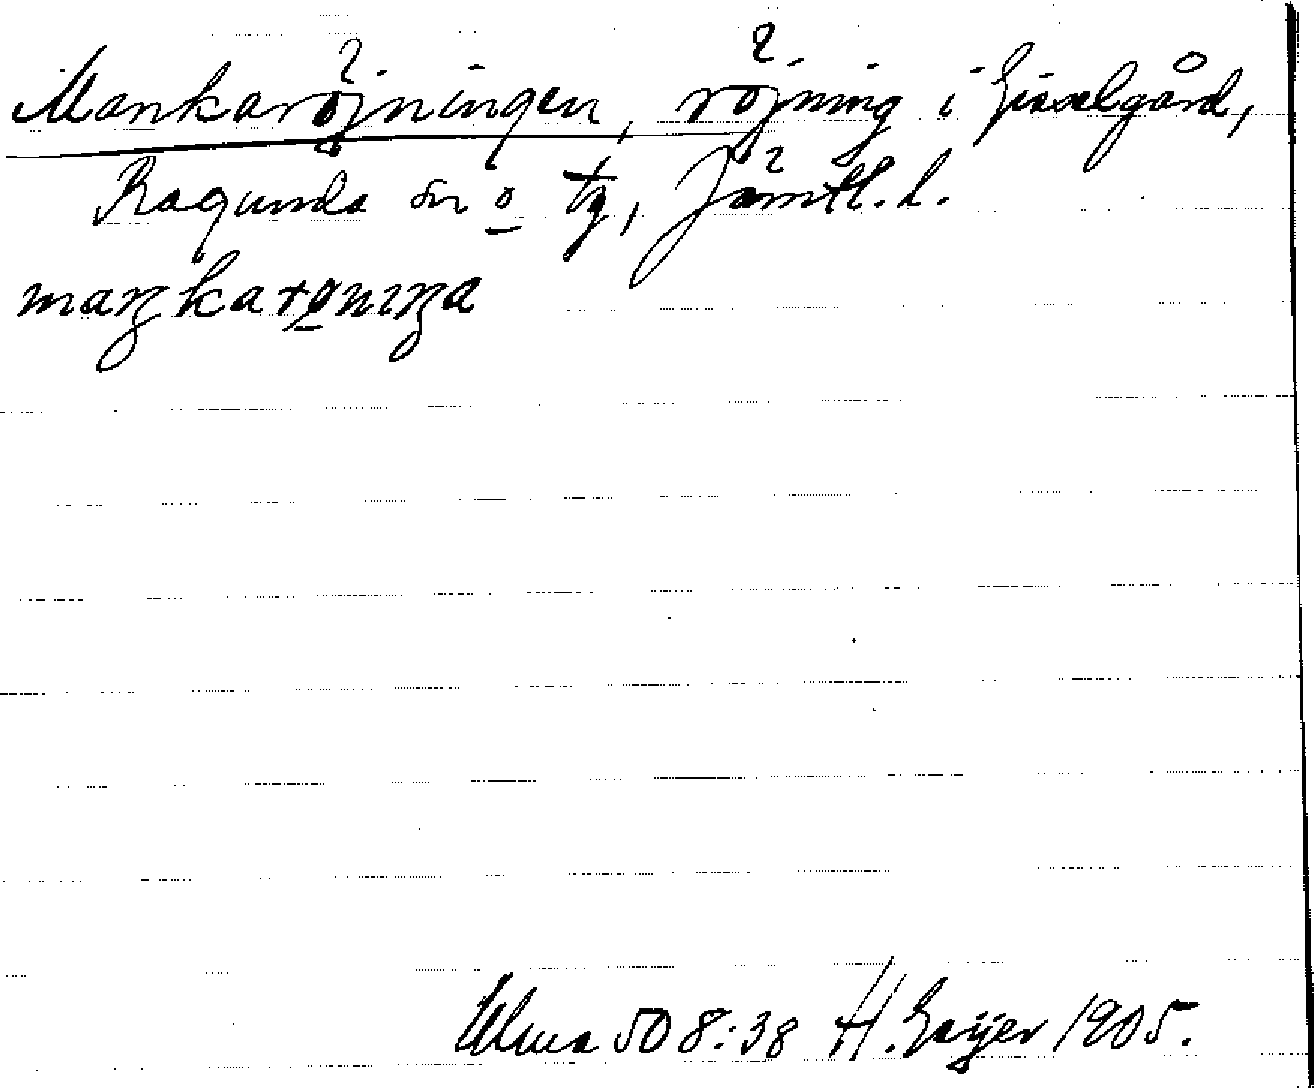 Mankaröjningen, röjning i Gisselgård,
Ragunda sn o tg, Jämtl. l.
maŋkarønıŋa
Ulma 508:38 H. Geijer 1905.